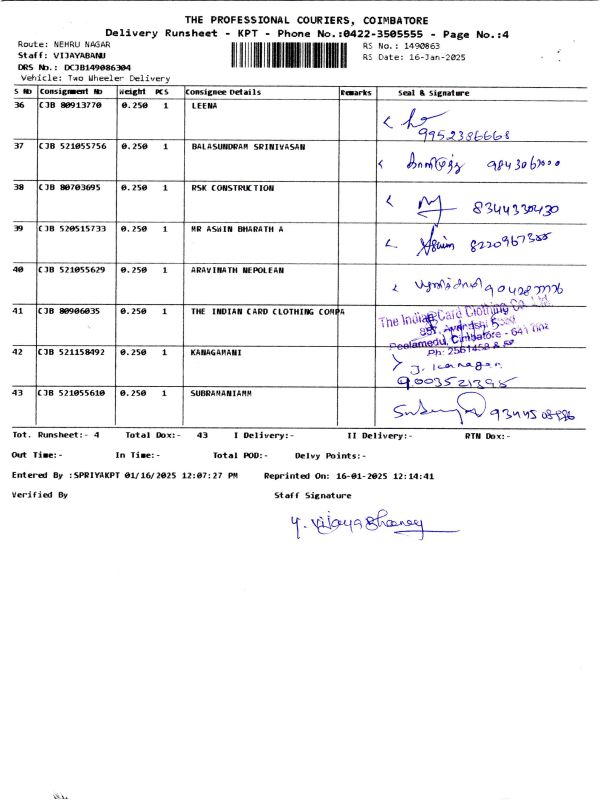 THE PROFESSIONAL COURIERS, COIMBATORE
Delivery Runsheet - KPT - Phone No.:0422-3505555 - Page No.:4
Route: NEHRU NAGAR RS No.: 1490863
Staff: VIJAYABANU RS Date: 16-Jan-2025
DRS No.: DCJB149086304
Vehicle: Two Wheeler Delivery
S No Consignment No Weight PCS Consignee Details Remarks Seal & Signature
36 CJB 80913770 0.250 1 LEENA
9952386668
37 CJB 521055756 0.250 1 BALASUNDRAM SRINIVASAN
38 CJB 80703695 0.250 1 RSK CONSTRUCTION
8344330430
39 CJB 520515733 0.250 1 MR ASWIN BHARATH A
40 CJB 521055629 0.250 1 ARAVINATH NEPOLEAN
41 CJB 80906035 0.250 1 THE INDIAN CARD CLOTHING COMPA
The Indian Card Clothing Co. Ltd.
42 CJB 521158492 0.250 1 KANAGAMANI
9003521395
43 CJB 521055610 0.250 1 SUBRAMANIAMM
Tot. Runsheet:- 4 Total Dox:- 43 I Delivery:- II Delivery:- RTN Dox:-
Out Time:- In Time:- Total POD:- Delvy Points:-
Entered By :SPRIYAKPT 01/16/2025 12:07:27 PM Reprinted On: 16-01-2025 12:14:41
Verified By Staff Signature